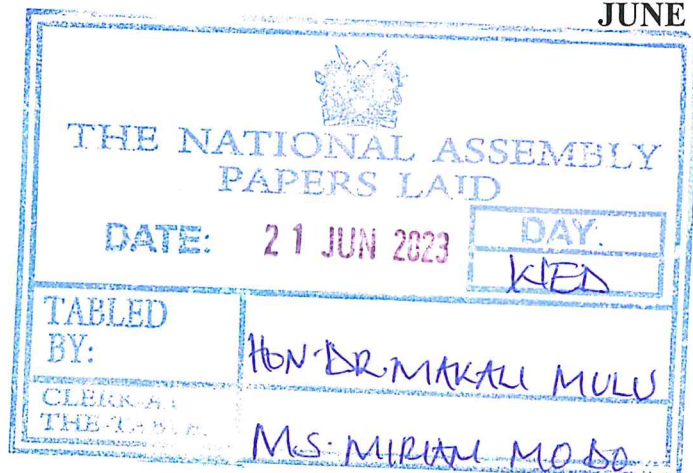 JUNE
THE NATIONAL ASSEMBLY
PAPERS LAID
DATE: 21 JUN 2023 DAY:
WED
TABLED
BY: HON. DR. MAKALI MULU
CLERK-AT
THE-TABLE: MS. MIRIAM MODO